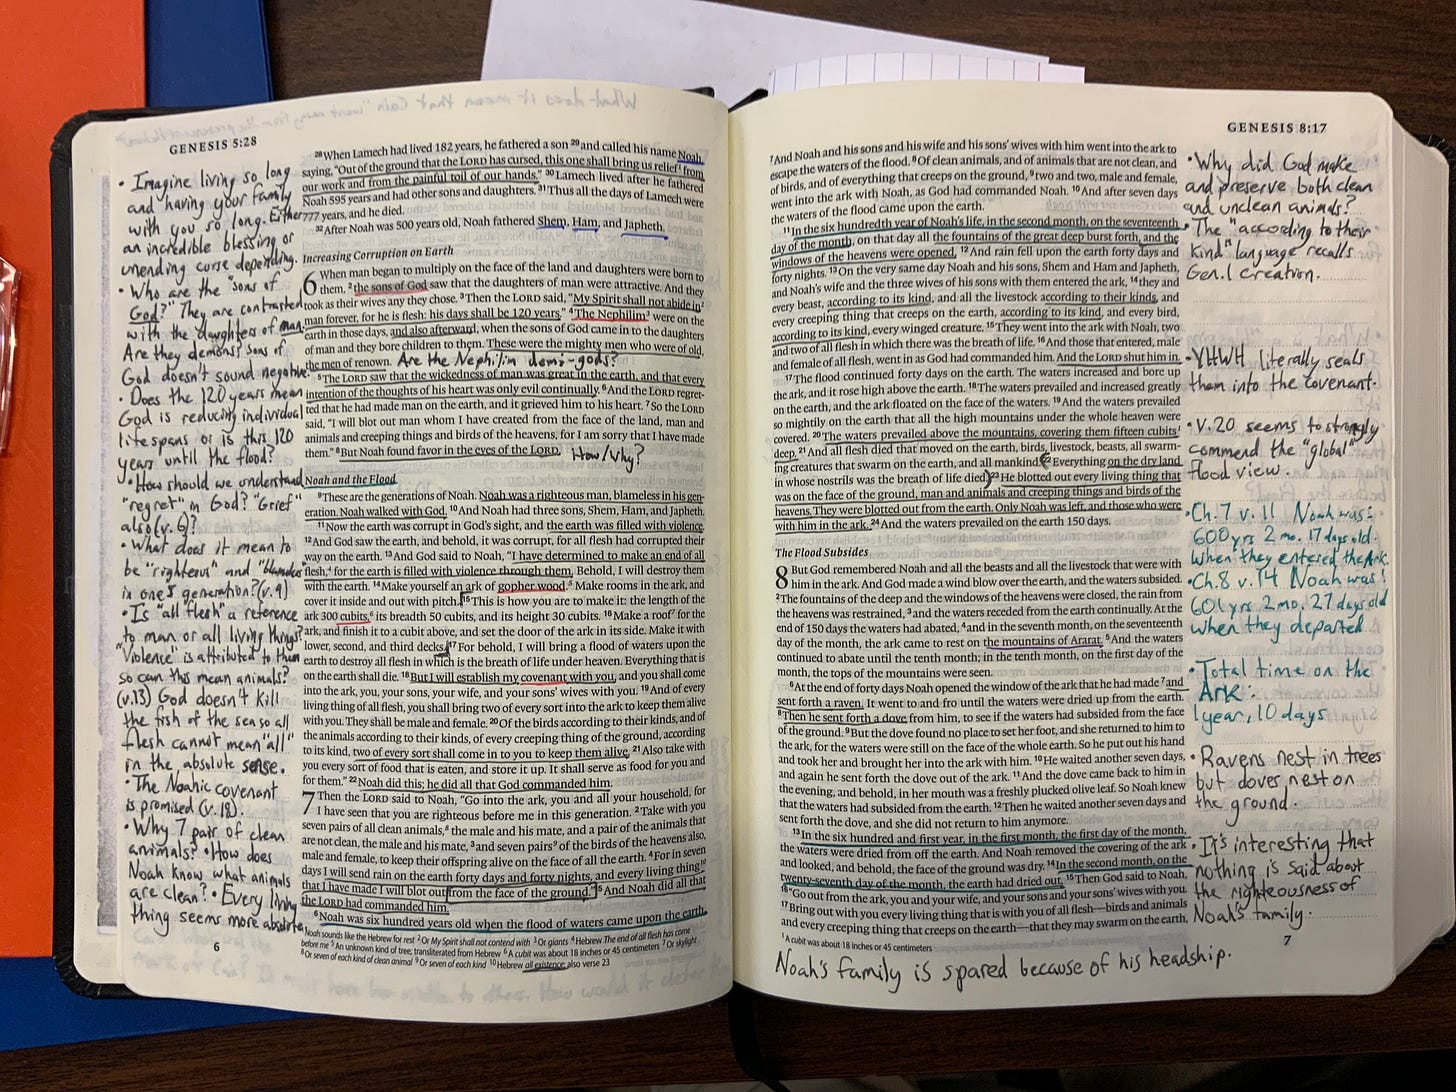 GENESIS 5:28
• Imagine living so long
and having your family
with you so long. Either
an incredible blessing or
unending curse depending.
• Who are the "sons of
God?" They are contrasted
with the daughters of man.
Are they demons? Sons of
God doesn't sound negative.
• Does the 120 years mean
God is reducing individual
lifespans or is this 120
years until the flood?
• How should we understand
"regret" in God? "Grief"
also (v. 6)?
• What does it mean to
be "righteous" and "blameless"
in one's generation? (v. 9)
• Is "all flesh" a reference
to man or all living things?
"Violence" is attributed to them
so can this mean animals?
(v.13) God doesn't kill
the fish of the sea so all
flesh cannot mean "all"
in the absolute sense.
• The Noahic covenant
is promised (v. 18).
• Why 7 pair of clean
animals? • How does
Noah know what animals
are clean? • Every living
thing seems more absolute.
6
28When Lamech had lived 182 years, he fathered a son 29and called his name Noah,
saying, "Out of the ground that the LORD has cursed, this one shall bring us relief1 from
our work and from the painful toil of our hands." 30Lamech lived after he fathered
Noah 595 years and had other sons and daughters. 31Thus all the days of Lamech were
777 years, and he died.
32After Noah was 500 years old, Noah fathered Shem, Ham, and Japheth.
Increasing Corruption on Earth
6 When man began to multiply on the face of the land and daughters were born to
them, 2the sons of God saw that the daughters of man were attractive. And they
took as their wives any they chose. 3Then the LORD said, "My Spirit shall not abide in2
man forever, for he is flesh: his days shall be 120 years." 4The Nephilim3 were on the
earth in those days, and also afterward, when the sons of God came in to the daughters
of man and they bore children to them. These were the mighty men who were of old,
the men of renown. Are the Nephilim demi-gods?
5The LORD saw that the wickedness of man was great in the earth, and that every
intention of the thoughts of his heart was only evil continually. 6And the LORD regret-
ted that he had made man on the earth, and it grieved him to his heart. 7So the LORD
said, "I will blot out man whom I have created from the face of the land, man and
animals and creeping things and birds of the heavens, for I am sorry that I have made
them." 8But Noah found favor in the eyes of the LORD. How/Why?
Noah and the Flood
9These are the generations of Noah. Noah was a righteous man, blameless in his gen-
eration. Noah walked with God. 10And Noah had three sons, Shem, Ham, and Japheth.
11Now the earth was corrupt in God's sight, and the earth was filled with violence.
12And God saw the earth, and behold, it was corrupt, for all flesh had corrupted their
way on the earth. 13And God said to Noah, "I have determined to make an end of all
flesh,4 for the earth is filled with violence through them. Behold, I will destroy them
with the earth. 14Make yourself an ark of gopher wood.5 Make rooms in the ark, and
cover it inside and out with pitch. 15This is how you are to make it: the length of the
ark 300 cubits,6 its breadth 50 cubits, and its height 30 cubits. 16Make a roof7 for the
ark, and finish it to a cubit above, and set the door of the ark in its side. Make it with
lower, second, and third decks. 17For behold, I will bring a flood of waters upon the
earth to destroy all flesh in which is the breath of life under heaven. Everything that is
on the earth shall die. 18But I will establish my covenant with you, and you shall come
into the ark, you, your sons, your wife, and your sons' wives with you. 19And of every
living thing of all flesh, you shall bring two of every sort into the ark to keep them alive
with you. They shall be male and female. 20Of the birds according to their kinds, and of
the animals according to their kinds, of every creeping thing of the ground, according
to its kind, two of every sort shall come in to you to keep them alive. 21Also take with
you every sort of food that is eaten, and store it up. It shall serve as food for you and
for them." 22Noah did this; he did all that God commanded him.
7 Then the LORD said to Noah, "Go into the ark, you and all your household, for
I have seen that you are righteous before me in this generation. 2Take with you
seven pairs of all clean animals,8 the male and his mate, and a pair of the animals that
are not clean, the male and his mate, 3and seven pairs9 of the birds of the heavens also,
male and female, to keep their offspring alive on the face of all the earth. 4For in seven
days I will send rain on the earth forty days and forty nights, and every living thing10
that I have made I will blot out from the face of the ground." 5And Noah did all that
the LORD had commanded him.
6Noah was six hundred years old when the flood of waters came upon the earth.
1 Noah sounds like the Hebrew for rest 2 Or My Spirit shall not contend with 3 Or giants 4 Hebrew The end of all flesh has come
before me 5 An unknown kind of tree; transliterated from Hebrew 6 A cubit was about 18 inches or 45 centimeters 7 Or skylight
8 Or seven of each kind of clean animal 9 Or seven of each kind 10 Hebrew all existence; also verse 23
GENESIS 8:17
7And Noah and his sons and his wife and his sons' wives with him went into the ark to
escape the waters of the flood. 8Of clean animals, and of animals that are not clean, and
of birds, and of everything that creeps on the ground, 9two and two, male and female,
went into the ark with Noah, as God had commanded Noah. 10And after seven days
the waters of the flood came upon the earth.
11In the six hundredth year of Noah's life, in the second month, on the seventeenth
day of the month, on that day all the fountains of the great deep burst forth, and the
windows of the heavens were opened. 12And rain fell upon the earth forty days and
forty nights. 13On the very same day Noah and his sons, Shem and Ham and Japheth,
and Noah's wife and the three wives of his sons with them entered the ark, 14they and
every beast, according to its kind, and all the livestock according to their kinds, and
every creeping thing that creeps on the earth, according to its kind, and every bird,
according to its kind, every winged creature. 15They went into the ark with Noah, two
and two of all flesh in which there was the breath of life. 16And those that entered, male
and female of all flesh, went in as God had commanded him. And the LORD shut him in.
17The flood continued forty days on the earth. The waters increased and bore up
the ark, and it rose high above the earth. 18The waters prevailed and increased greatly
on the earth, and the ark floated on the face of the waters. 19And the waters prevailed
so mightily on the earth that all the high mountains under the whole heaven were
covered. 20The waters prevailed above the mountains, covering them fifteen cubits1
deep. 21And all flesh died that moved on the earth, birds, livestock, beasts, all swarm-
ing creatures that swarm on the earth, and all mankind. 22Everything on the dry land
in whose nostrils was the breath of life died. 23He blotted out every living thing that
was on the face of the ground, man and animals and creeping things and birds of the
heavens. They were blotted out from the earth. Only Noah was left, and those who were
with him in the ark. 24And the waters prevailed on the earth 150 days.
The Flood Subsides
8 But God remembered Noah and all the beasts and all the livestock that were with
him in the ark. And God made a wind blow over the earth, and the waters subsided.
2The fountains of the deep and the windows of the heavens were closed, the rain from
the heavens was restrained, 3and the waters receded from the earth continually. At the
end of 150 days the waters had abated, 4and in the seventh month, on the seventeenth
day of the month, the ark came to rest on the mountains of Ararat. 5And the waters
continued to abate until the tenth month; in the tenth month, on the first day of the
month, the tops of the mountains were seen.
6At the end of forty days Noah opened the window of the ark that he had made 7and
sent forth a raven. It went to and fro until the waters were dried up from the earth.
8Then he sent forth a dove from him, to see if the waters had subsided from the face
of the ground. 9But the dove found no place to set her foot, and she returned to him to
the ark, for the waters were still on the face of the whole earth. So he put out his hand
and took her and brought her into the ark with him. 10He waited another seven days,
and again he sent forth the dove out of the ark. 11And the dove came back to him in
the evening, and behold, in her mouth was a freshly plucked olive leaf. So Noah knew
that the waters had subsided from the earth. 12Then he waited another seven days and
sent forth the dove, and she did not return to him anymore.
13In the six hundred and first year, in the first month, the first day of the month,
the waters were dried from off the earth. And Noah removed the covering of the ark
and looked, and behold, the face of the ground was dry. 14In the second month, on the
twenty-seventh day of the month, the earth had dried out. 15Then God said to Noah,
16"Go out from the ark, you and your wife, and your sons and your sons' wives with you.
17Bring out with you every living thing that is with you of all flesh—birds and animals
and every creeping thing that creeps on the earth—that they may swarm on the earth,
1 A cubit was about 18 inches or 45 centimeters
7
Noah's family is spared because of his headship.
• Why did God make
and preserve both clean
and unclean animals?
• The "according to their
kind" language recalls
Gen. 1 creation.
• YHWH literally seals
them into the covenant.
• v. 20 seems to strongly
commend the "global"
flood view.
• Ch. 7 v. 11 Noah was:
600 yrs 2 mo. 17 days old.
When they entered the Ark.
• Ch. 8 v. 14 Noah was:
601 yrs 2 mo, 27 days old
when they departed
• Total time on the
Ark:
1 year, 10 days
• Ravens nest in trees
but doves nest on
the ground.
• It's interesting that
nothing is said about
the righteousness of
Noah's family.